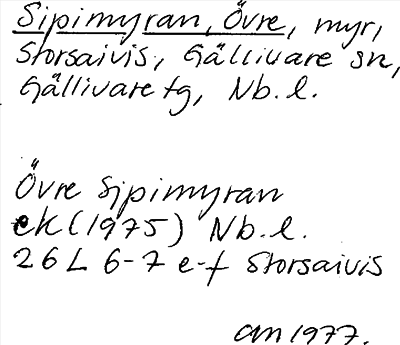 Sipimyran, Övre, myr,
Storsaivis, Gällivare sn,
Gällivare tg, Nb. l.
Övre Sipimyran
ek (1975) Nb. l.
26 L 6-7 e-f Storsaivis
an 1977.